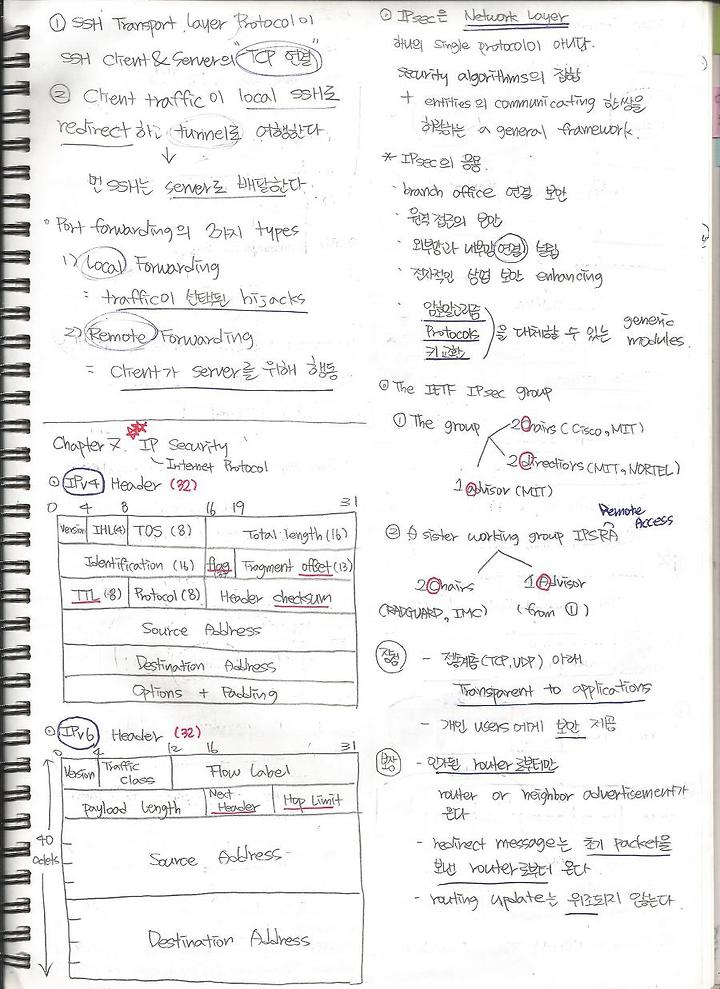 ① SSH Transport Layer Protocol이
SSH Client & Server의 "TCP 연결"
② Client traffic이 local SSH로
redirect 하고 tunnel로 여행한다.
↓
먼 SSH는 server로 배달한다.
° Port forwarding의 2가지 types
1) Local Forwarding
: traffic이 선택된 hijacks
2) Remote Forwarding
= Client가 server를 위해 행동
Chapter 7. IP Security
Internet Protocol
IPv4 Header (32)
0 4 8 16 19 31
Version IHL(4) TOS (8) Total length (16)
Identification (16) flag Fragment offset (13)
TTL (8) Protocol (8) Header checksum
Source Address
Destination Address
Options + Padding
IPv6 Header (32)
0 4 12 16 31
Version Traffic Class Flow Label
Payload Length Next Header Hop Limit
40 octets
Source Address
Destination Address
IPsec은 Network Layer
하나의 single protocol이 아니다.
security algorithms의 집합
+ entities의 communicating 한쌍을
허락하는 a general framework.
* IPsec의 응용
· branch office 연결 보안
· 원격 접근의 보안
· 외부망과 내부망 연결 설립
· 전자적인 상업 보안 enhancing
· 암호알고리즘
Protocols
키교환
을 대체할 수 있는 generic modules.
The IETF IPsec group
① The group
2 Chairs (Cisco, MIT)
2 directiors (MIT, NORTEL)
1 Advisor (MIT)
② A sister working group IPSRA
Remote Access
2 Chairs 1 Advisor
(RADGUARD, IMC) (from ①)
장점 - 전송계층(TCP, UDP) 아래
Transparent to applications
- 개인 users에게 보안 제공
보장 - 인가된 router로부터만
router or neighbor advertisement가
온다
- redirect message는 초기 packet을
보낸 router로부터 온다
- routing update는 위조되지 않는다.